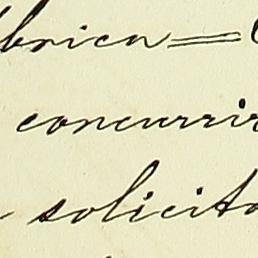 brica=
concurrir
solicito